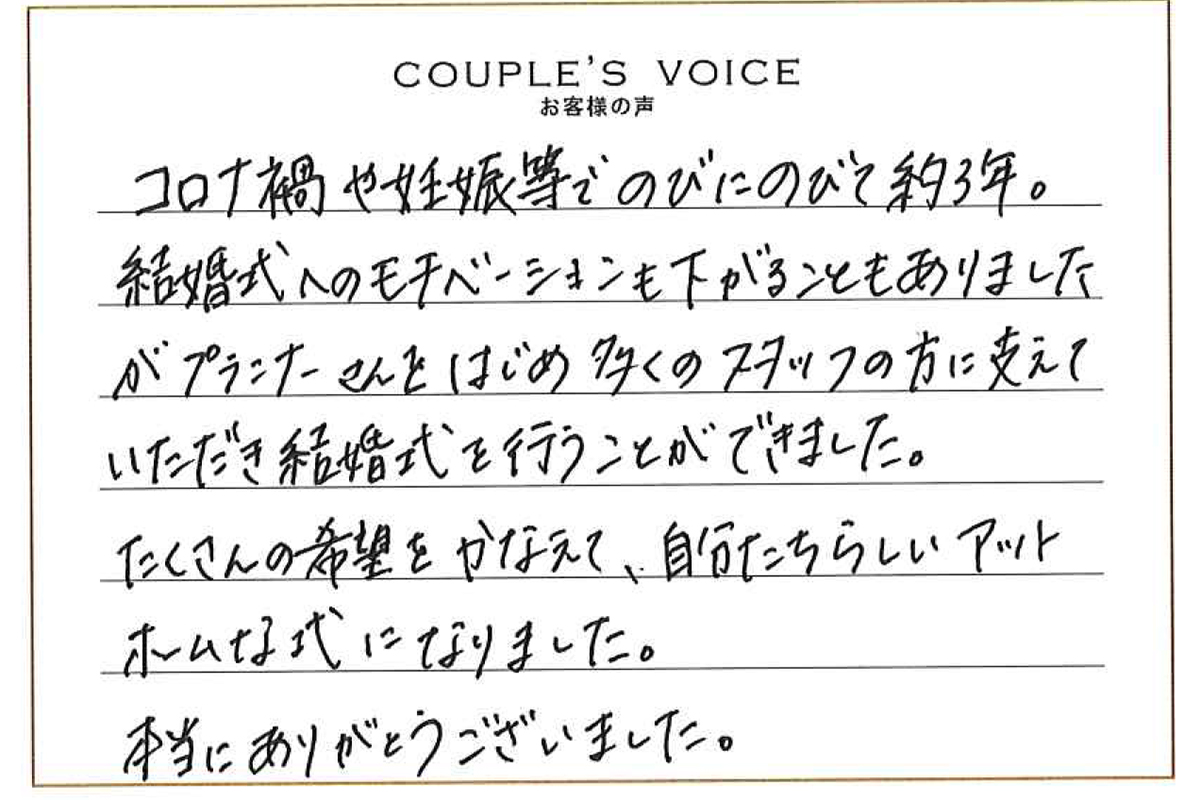 COUPLE'S VOICE
お客様の声
コロナ禍や妊娠等でのびにのびて約3年。
結婚式へのモチベーションも下がることもありました
がプランナーさんをはじめ多くのスタッフの方に支えて
いただき結婚式を行うことができました。
たくさんの希望をかなえて、自分たちらしいアット
ホームな式になりました。
本当にありがとうございました。